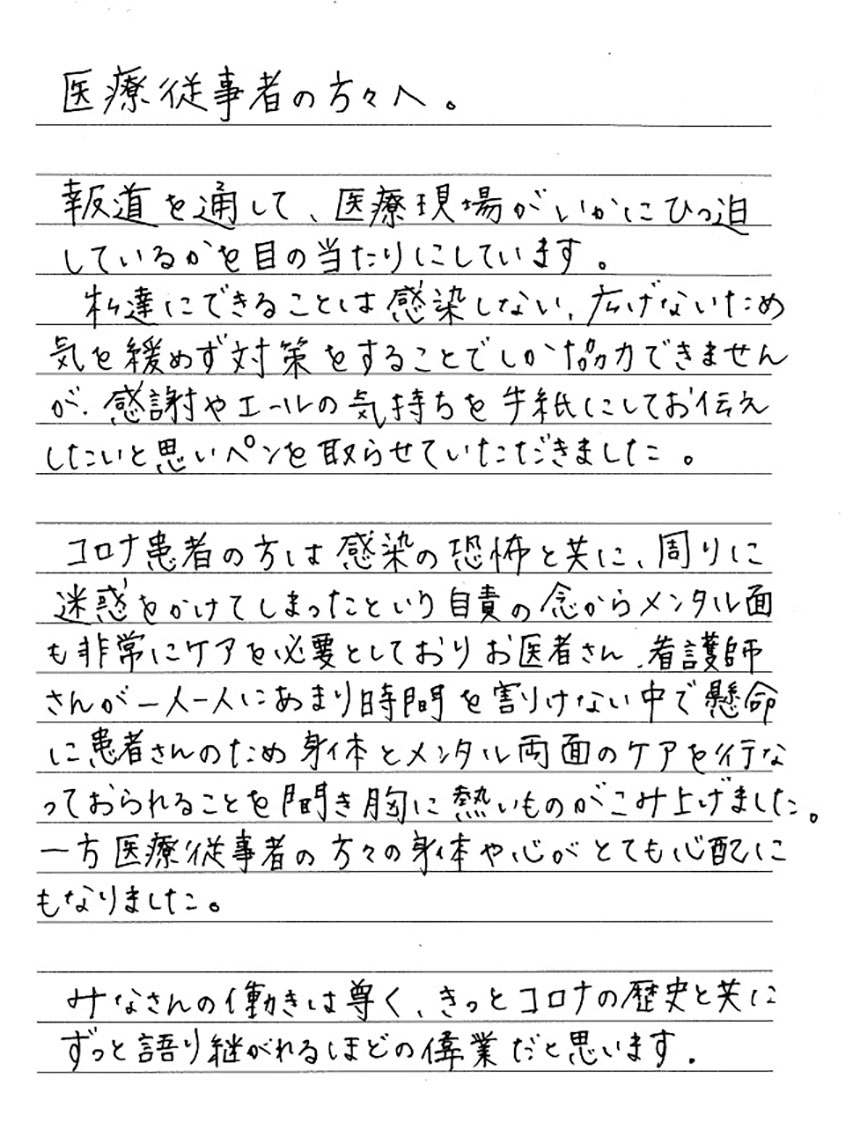 医療従事者の方々へ。
報道を通して、医療現場がいかにひっ迫
しているかを目の当たりにしています。
私達にできることは感染しない、広げないため
気を緩めず対策をすることでしか協力できません
が、感謝やエールの気持ちを手紙にしてお伝え
したいと思いペンを取らせていただきました。
コロナ患者の方は感染の恐怖と共に、周りに
迷惑をかけてしまったという自責の念からメンタル面
も非常にケアを必要としておりお医者さん、看護師
さんが一人一人にあまり時間を割けない中で懸命
に患者さんのため身体とメンタル両面のケアを行な
っておられることを聞き胸に熱いものがこみ上げました。
一方医療従事者の方々の身体や心がとても心配に
もなりました。
みなさんの働きは尊く、きっとコロナの歴史と共に
ずっと語り継がれるほどの偉業だと思います.